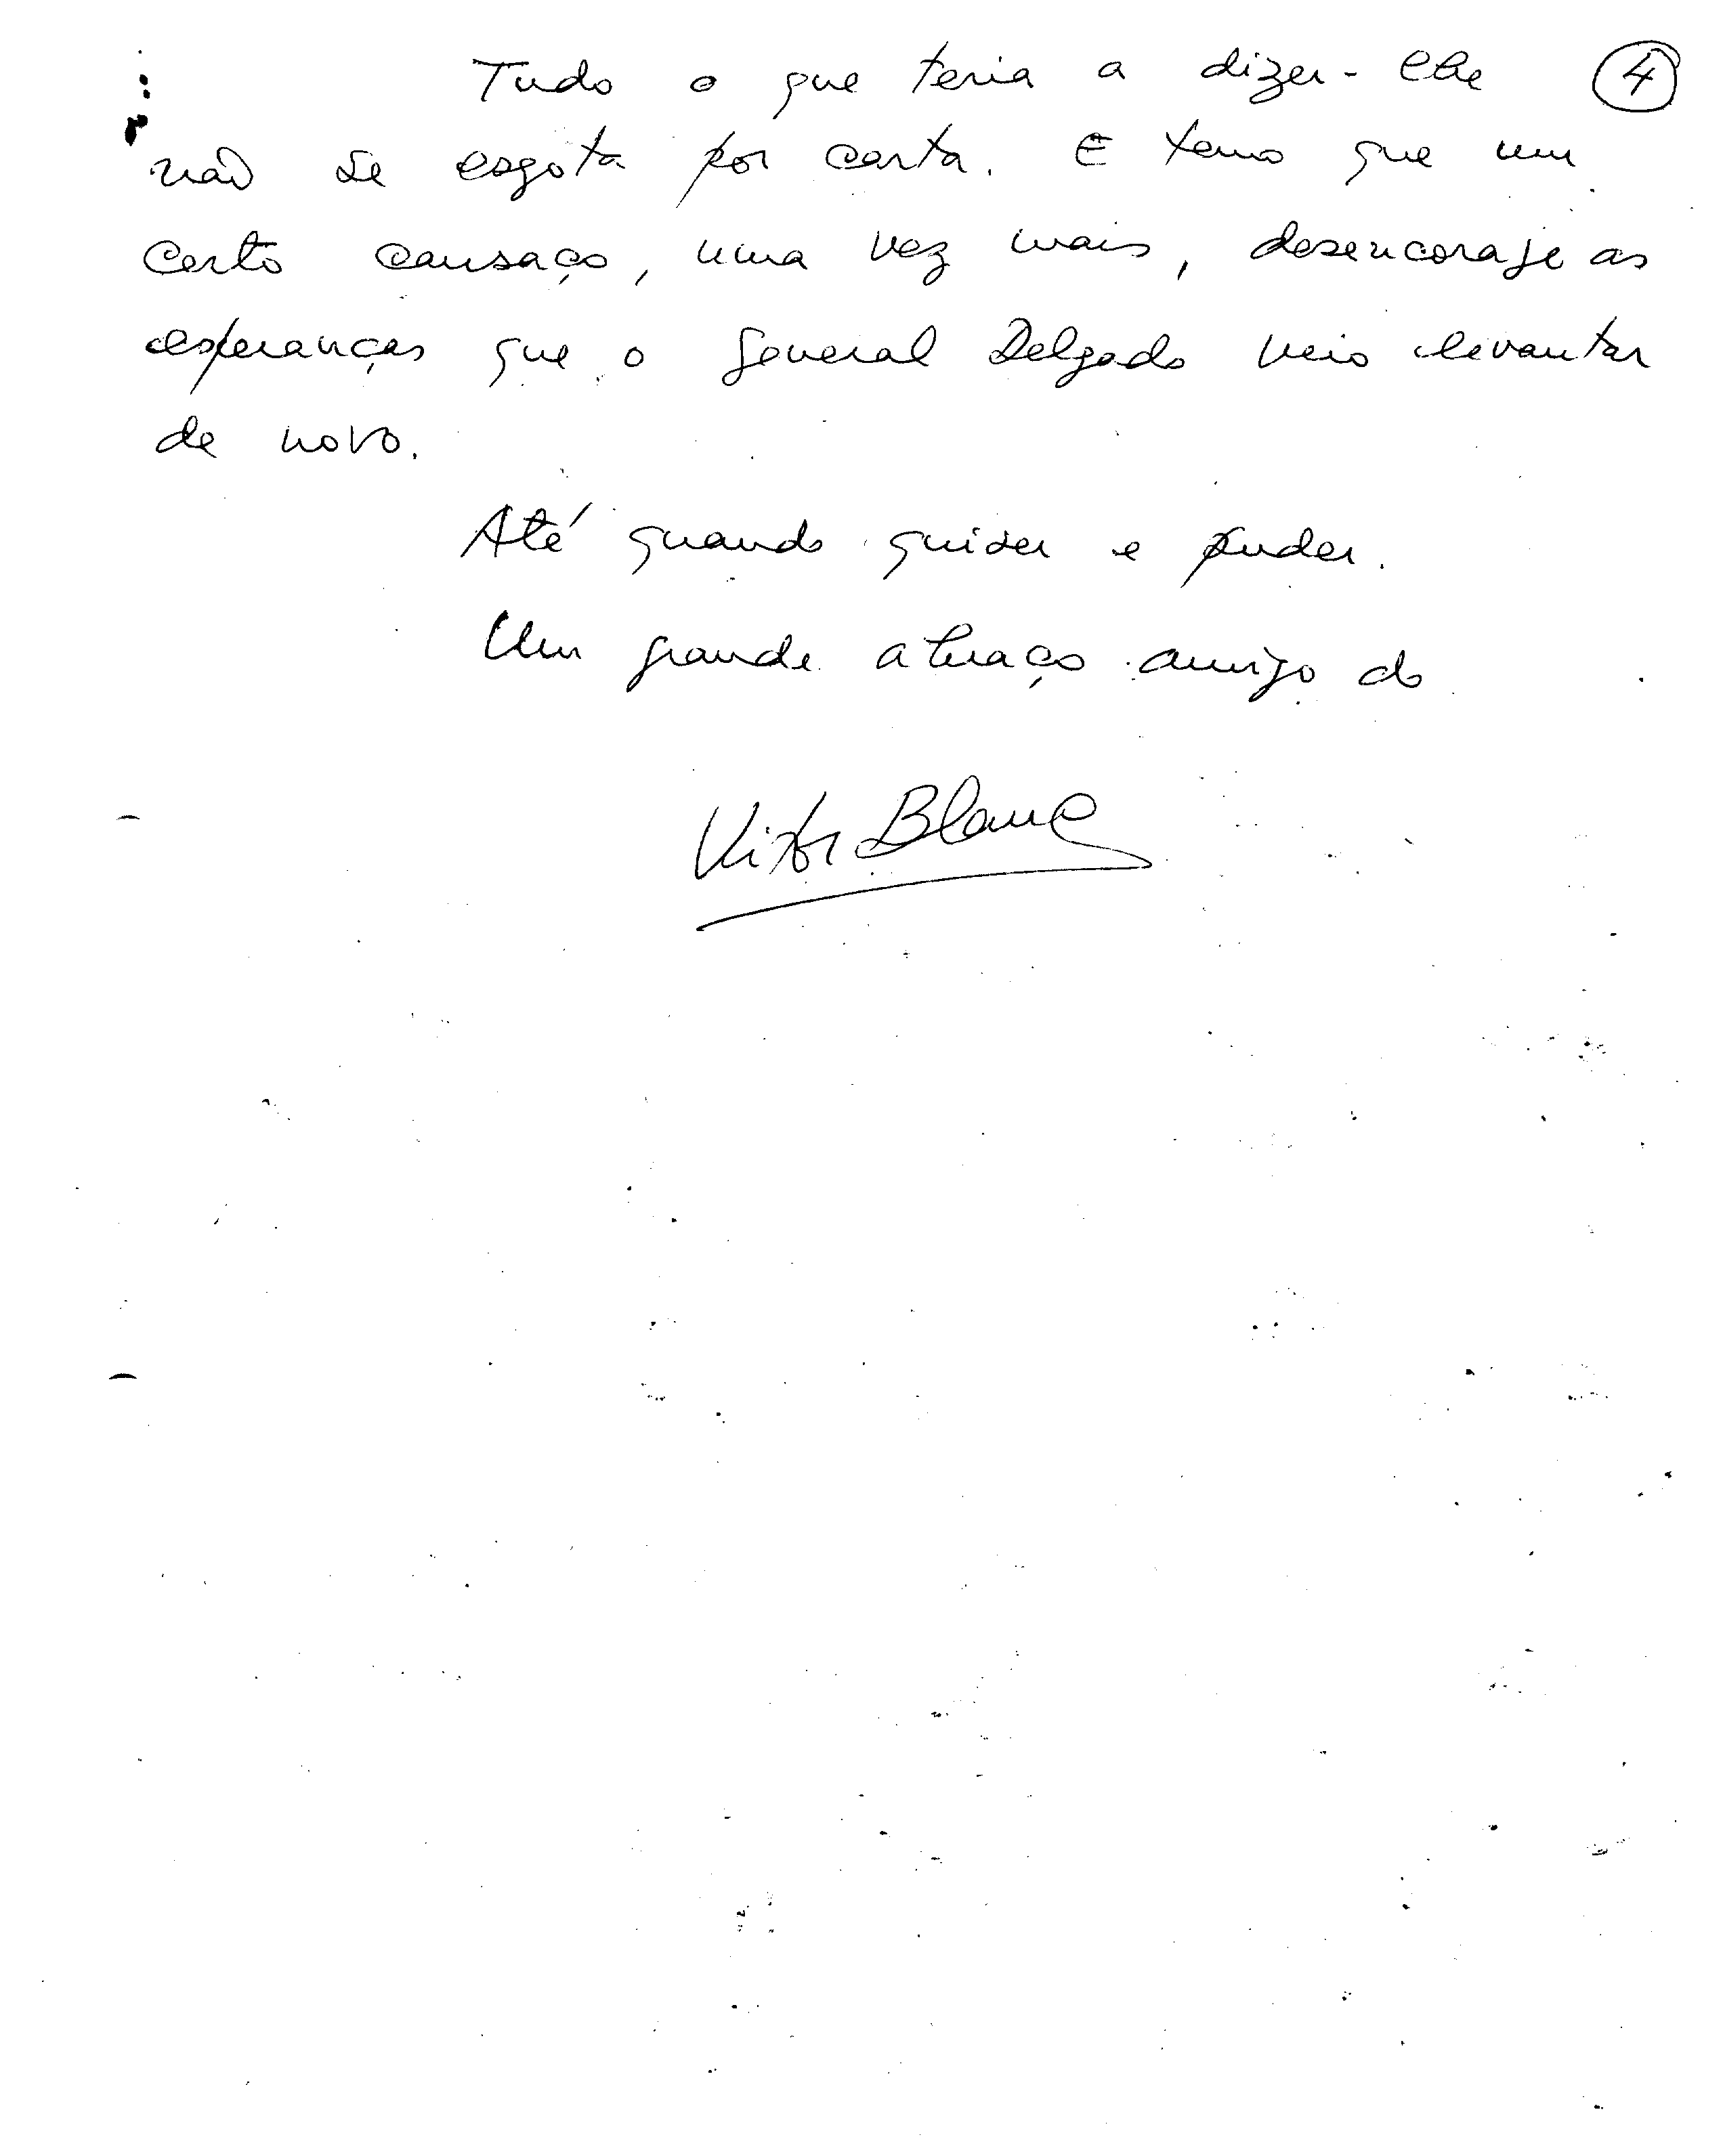 Tudo o que teria a dizer-lhe ④
não se esgota por carta. E temo que um
certo cansaço, uma vez mais, desencoraje as
esperanças que o general Delgado veio levantar
de novo.
Até quando quiser e puder.
Um grande abraço amigo do
Vitor Blanc